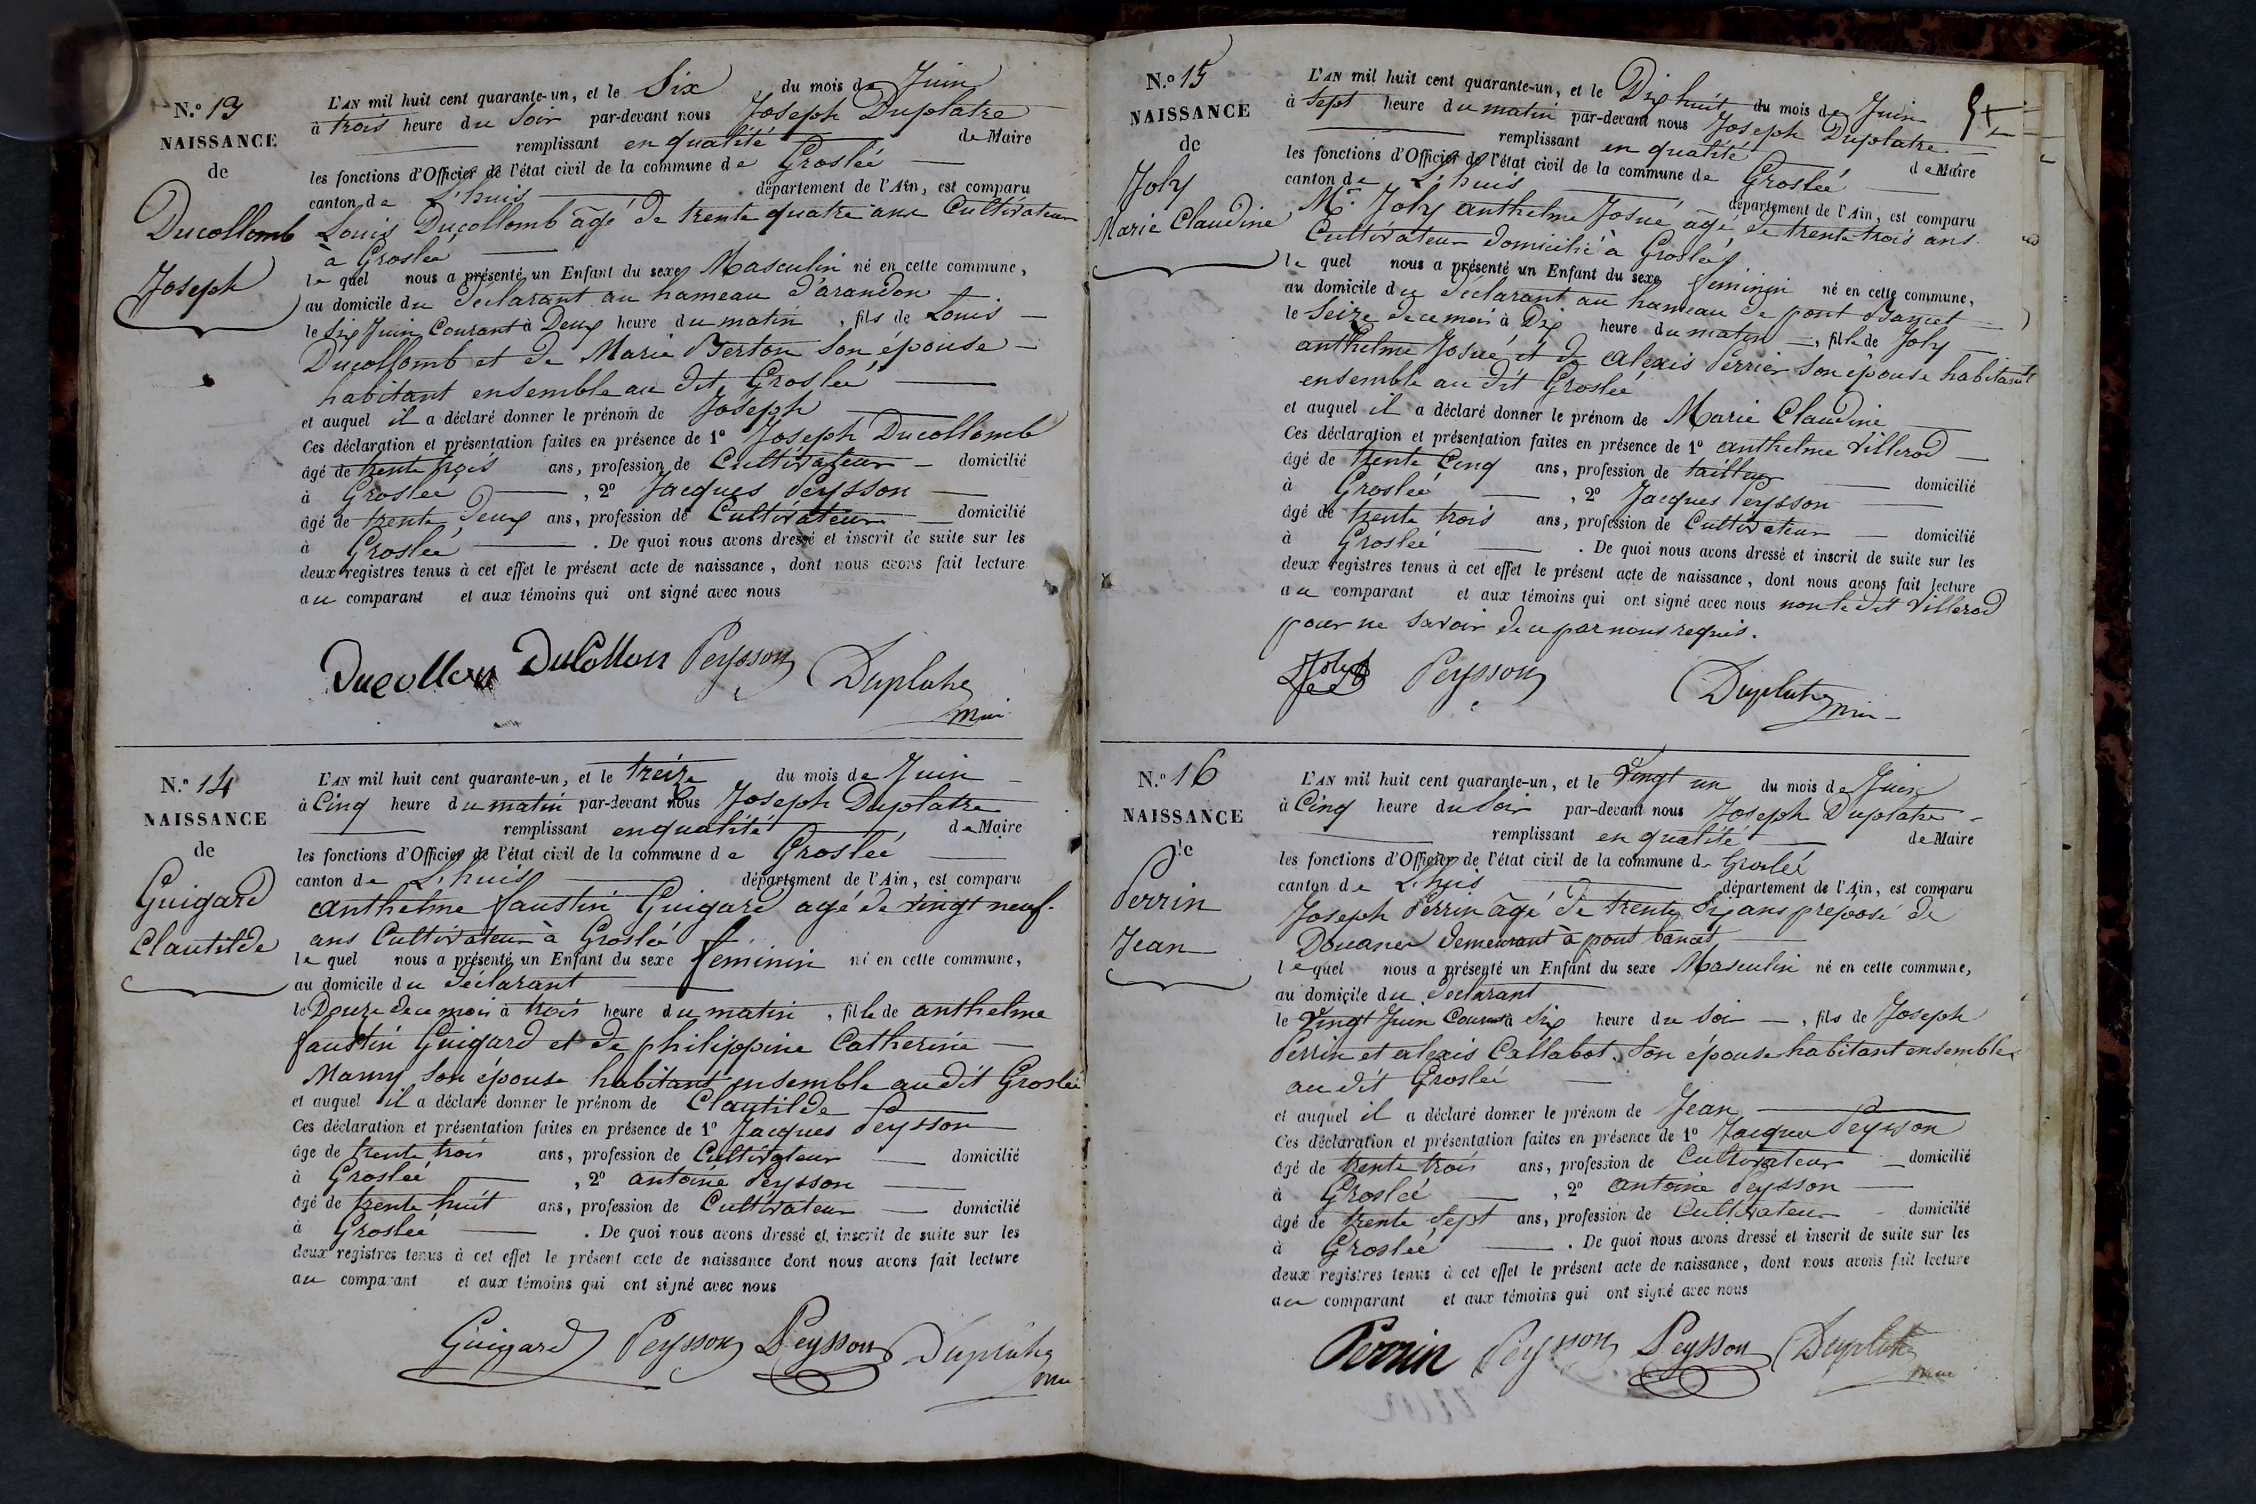 N.º 13
NAISSANCE
de
Ducollomb
Joseph
L'AN mil huit cent quarante-un, et le Six du mois de Juin
à trois heure du Soir par-devant nous Joseph Duplatre
remplissant en qualité de Maire
les fonctions d'Officier de l'état civil de la commune de Groslée
canton de L'huis département de l'Ain, est comparu
Louis Ducollomb âgé de trente quatre ans Cultivateur
à Groslée
le quel nous a présenté un Enfant du sexe Masculin né en cette commune,
au domicile du déclarant au hameau d'arandon
le Six Juin Courant à Deux heure du matin, fils de Louis
Ducollomb et de Marie Berton Son épouse
habitant ensemble au dit Groslée
et auquel il a déclaré donner le prénom de Joseph
Ces déclaration et présentation faites en présence de 1º Joseph Ducollomb
âgé de trente trois ans, profession de Cultivateur domicilié
à Groslée, 2º Jacques Peysson
âgé de trente deux ans, profession de Cultivateur domicilié
à Groslée. De quoi nous avons dressé et inscrit de suite sur les
deux registres tenus à cet effet le présent acte de naissance, dont nous avons fait lecture
au comparant et aux témoins qui ont signé avec nous
Ducollon DuCollon Peysson Duplatre
N.º 14
NAISSANCE
de
Guigard
Clautilde
L'AN mil huit cent quarante-un, et le treize du mois de Juin
à Cinq heure du matin par-devant nous Joseph Duplatre
remplissant en qualité de Maire
les fonctions d'Officier de l'état civil de la commune de Groslée
canton de L'huis département de l'Ain, est comparu
anthelme faustin Guigard agé de vingt neuf
ans Cultivateur à Groslée
le quel nous a présenté un Enfant du sexe féminin né en cette commune,
au domicile du déclarant
le Douze de ce mois à trois heure du matin, fille de anthelme
faustin Guigard et de philippine Catherine
Mamy son épouse habitant ensemble au dit Groslée
et auquel il a déclaré donner le prénom de Clautilde
Ces déclaration et présentation faites en présence de 1º Jacques Peysson
âge de trente trois ans, profession de Cultivateur domicilié
à Groslée, 2º antoine Peysson
âgé de trente huit ans, profession de Cultivateur domicilié
à Groslée. De quoi nous avons dressé et inscrit de suite sur les
deux registres tenus à cet effet le présent acte de naissance dont nous avons fait lecture
au comparant et aux témoins qui ont signé avec nous
Guigard Peysson Peysson Duplatre
N.º 15
NAISSANCE
de
Joly
Marie Claudine
L'AN mil huit cent quarante-un, et le Dix huit du mois de Juin
à Sept heure du matin par-devant nous Joseph Duplatre
remplissant en qualité de Maire
les fonctions d'Officier de l'état civil de la commune de Groslée
canton de L'huis département de l'Ain, est comparu
Mr. Joly anthelme Josué âgé de trente trois ans
Cultivateur domicilié à Groslée
le quel nous a présenté un Enfant du sexe féminin né en cette commune,
au domicile du déclarant au hameau de pont Bancet
le Seize de ce mois à Dix heure du matin, fille de Joly
anthelme Josué et de alexis Perrier Son épouse habitants
ensemble au dit Groslée
et auquel il a déclaré donner le prénom de Marie Claudine
Ces déclaration et présentation faites en présence de 1º anthelme Villerod
âgé de trente Cinq ans, profession de tailleur domicilié
à Groslée, 2º Jacques Peysson
âgé de trente trois ans, profession de Cultivateur domicilié
à Groslée. De quoi nous avons dressé et inscrit de suite sur les
deux registres tenus à cet effet le présent acte de naissance, dont nous avons fait lecture
au comparant et aux témoins qui ont signé avec nous non le dit Villerod
pour ne savoir de ce par nous requis.
Joly Peysson Duplatre
N.º 16
NAISSANCE
de
Perrin
Jean
L'AN mil huit cent quarante-un, et le Vingt un du mois de Juin
à Cinq heure du Soir par-devant nous Joseph Duplatre
remplissant en qualité de Maire
les fonctions d'Officier de l'état civil de la commune de Groslée
canton de L'huis département de l'Ain, est comparu
Joseph Perrin âgé de trente Six ans préposé de
Douanes demeurant à pont bancet
le quel nous a présenté un Enfant du sexe Masculin né en cette commune,
au domicile du déclarant
le Vingt Juin Courant à Six heure du Soir, fils de Joseph
Perrin et alexis Callabot Son épouse habitant ensemble
au dit Groslée
et auquel il a déclaré donner le prénom de Jean
Ces déclaration et présentation faites en présence de 1º Jacques Peysson
âgé de trente trois ans, profession de Cultivateur domicilié
à Groslée, 2º antoine Peysson
âgé de trente Sept ans, profession de Cultivateur domicilié
à Groslée. De quoi nous avons dressé et inscrit de suite sur les
deux registres tenus à cet effet le présent acte de naissance, dont nous avons fait lecture
au comparant et aux témoins qui ont signé avec nous
Perrin Peysson Peysson Duplatre